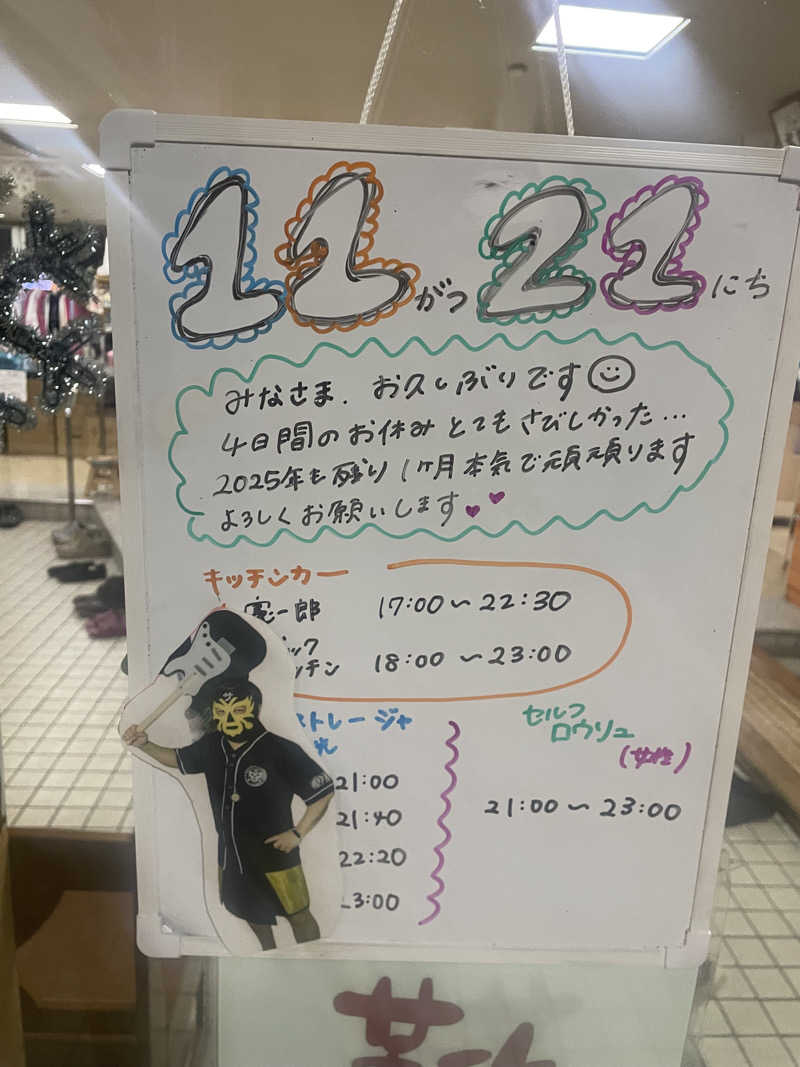 11がつ21にち
みなさま、お久しぶりです
4日間のお休みとてもさびしかった...
2025年も残り1ヶ月本気で頑張ります
よろしくお願いします
キッチンカー
憲一郎 17:00~22:30
ック
ッチン 18:00~23:00
ストレージャ
光
21:00
21:40
22:20
3:00
セルフ
ロウリュ
(女性)
21:00~23:00
靴